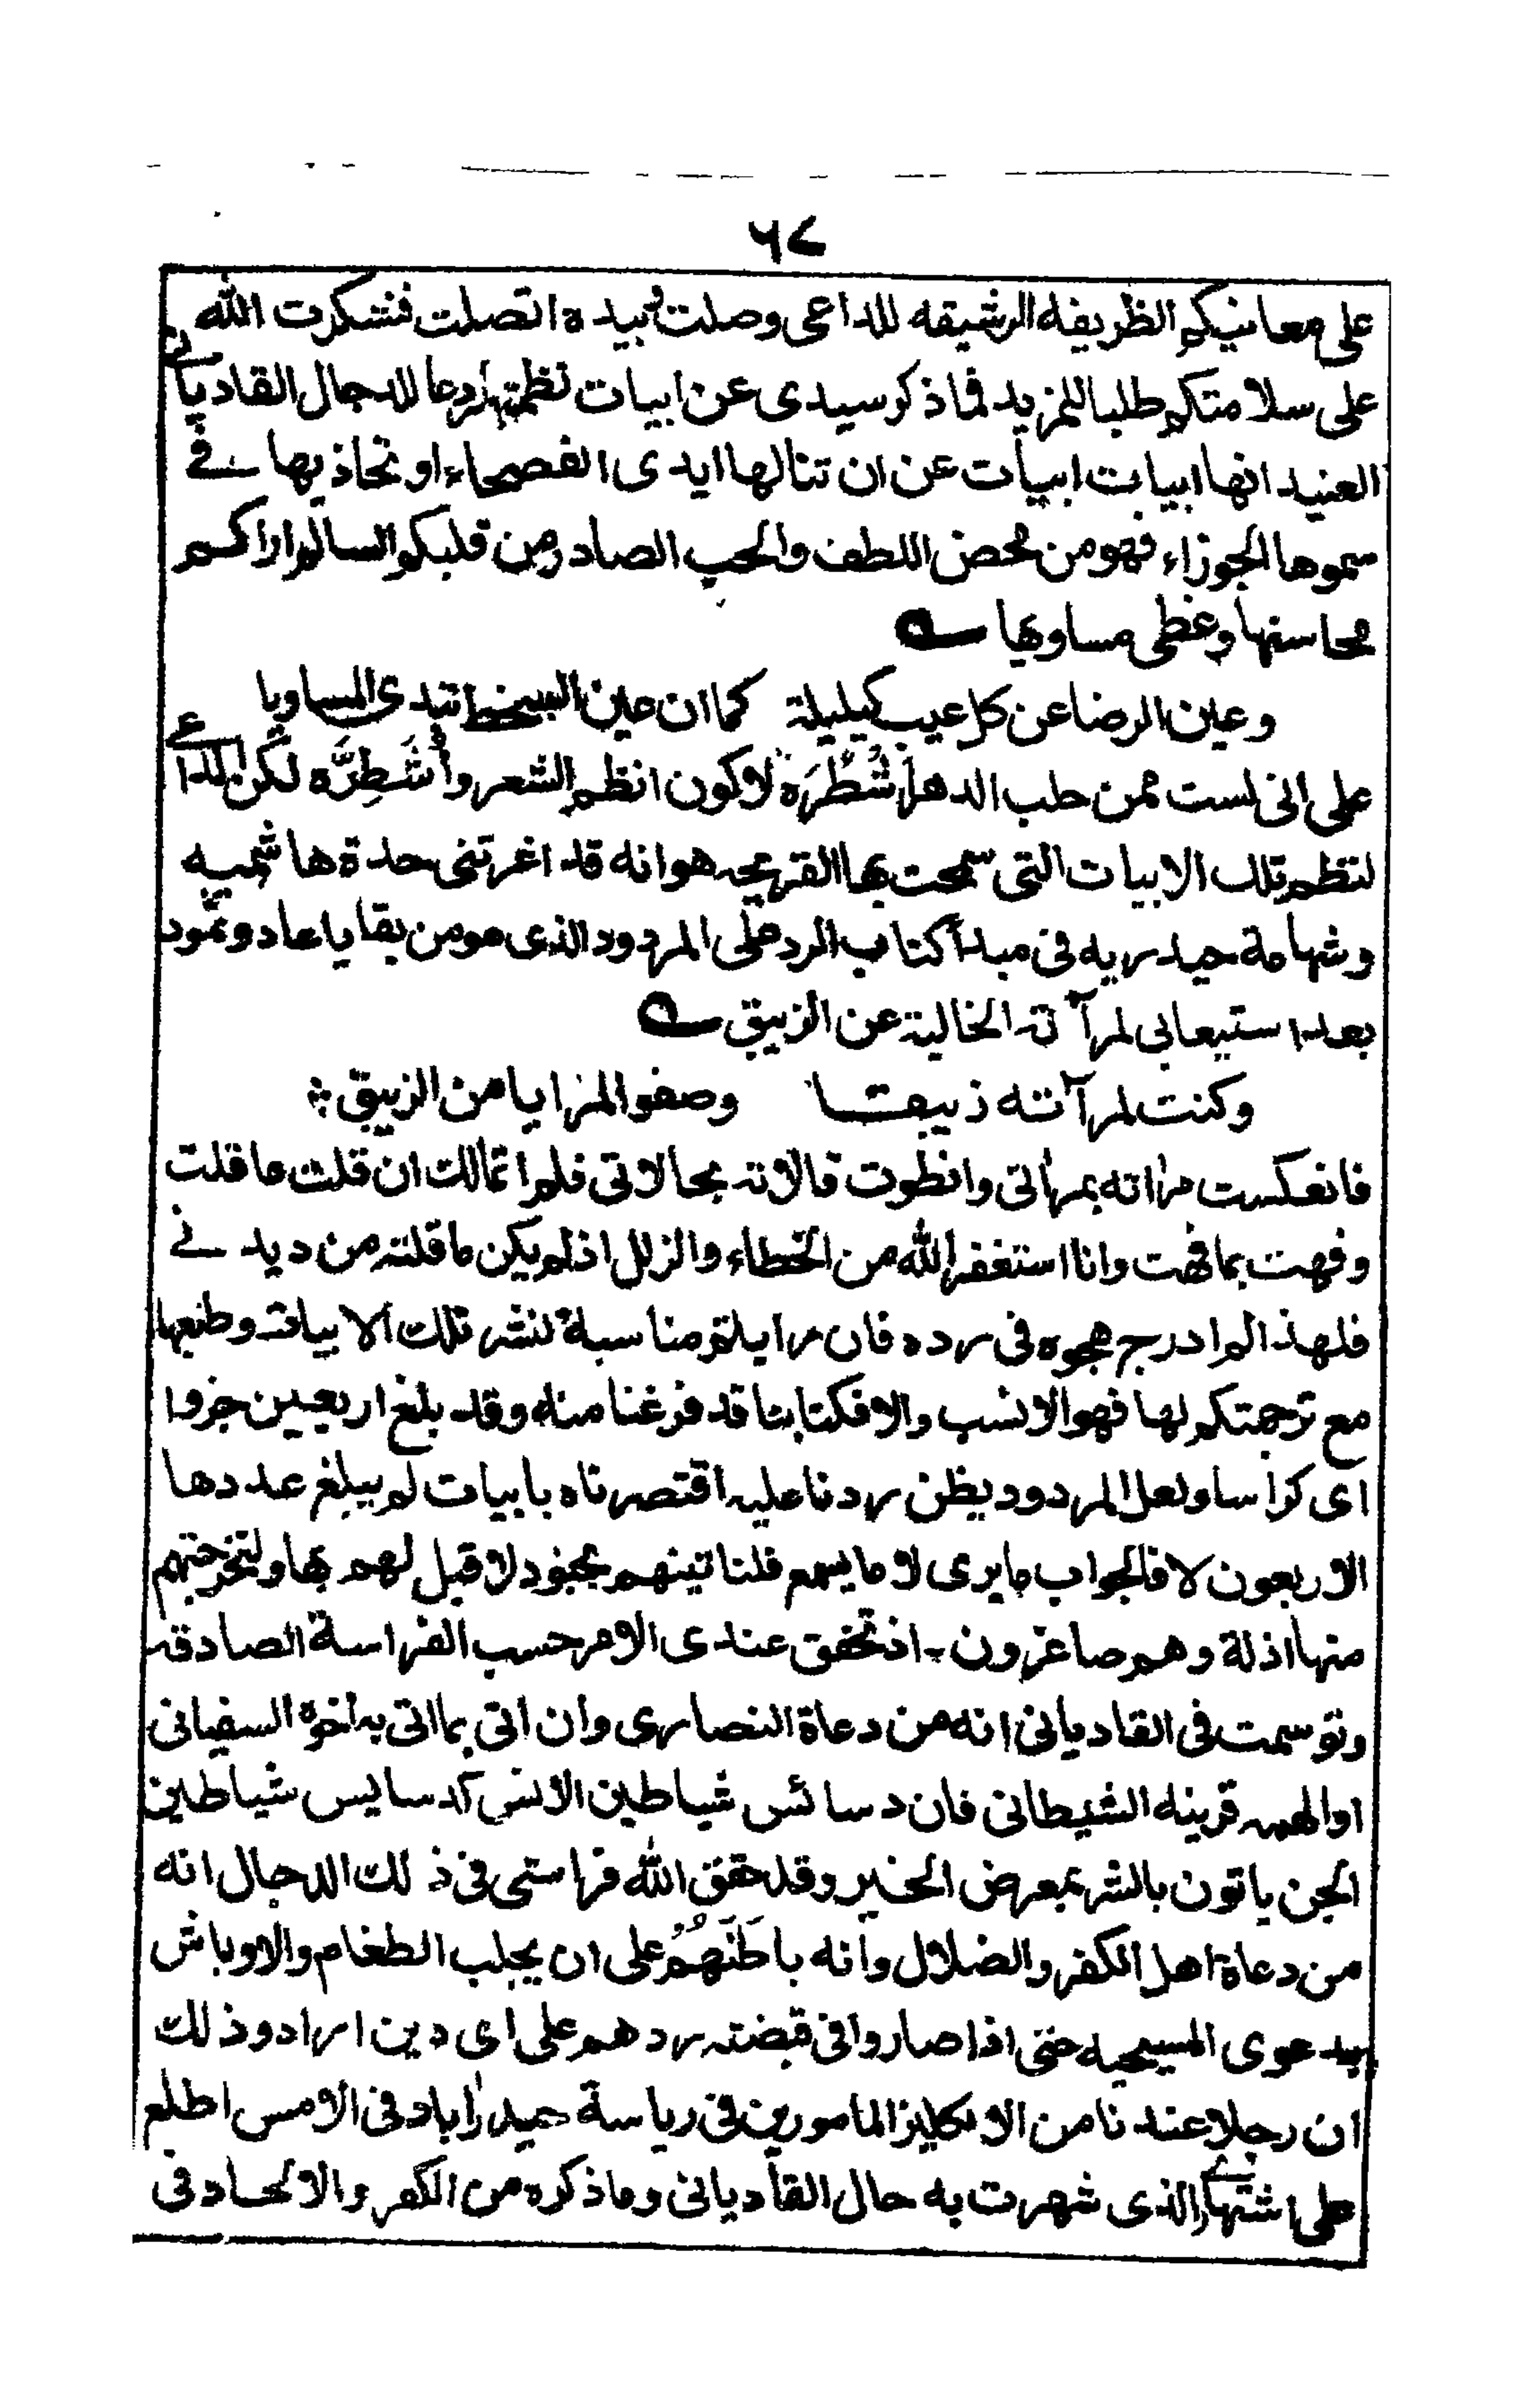 ٦٧
على معانيكم الظريفه الرشيقه للداعى وصلت وبيده اتصلت فتشكرت الله
على سلامتكم طلبا للمزيد فماذكر سيدى عن ابيات نظمتها ردعا للدجال القاديانى
العنيد انها ابيات ابيات عن ان تنالها ايدى الفصحاء او تحاذيها فى
سموها الجوزاء فهو من محض اللطف والحب الصادر من قلبكم السالم اراكم
محاسنها وغطى مساويها
وعين الرضا عن كل عيب كليلة كما ان عين السخط تبدى المساويا
على انى لست ممن حلب الدهر شُطْرَه لاكون انظم الشعر وأُشَطِرَّه لكن الداعى
لنظم تلك الابيات التى سمحت بها القريحه هو انه قد اغرتنى حدة هاشميه
وشهامة حيدريه فى مبدأ كتاب الرد على المردود الذى هو من بقايا عاد وثمود
بعد استيعابى لمرآته الخالية عن الزيبق
وكنت لمرآته زيبقا وصفو المزايا من الزيبق
فانعكست مرأته بمرأتى وانطوت قالاته بحالاتى فلم اتمالك ان قلت ما قلت
وفهت بما فهت وانا استغفر الله من الخطاء والزلل اذ لم يكن ما قلته من ديدنى
فلهذا لم ادرج هجوه فى رده فان رايلتم مناسبة لنشر تلك الابيات وطبعها
مع ترجمتكم لها فهو الانسب والا فكتابنا قد فرغنا منه وقد بلغ اربعين جزوا
اى كراسا ولعل المردود يظن ردنا عليه اقتصرناه بابيات لم يبلغ عددها
الاربعون لا فالجواب ما يرى لا ما يسمع فلناتينهم بجنود لا قبل لهم بها ولنخرجنهم
منها اذلة وهم صاغرون - اذ تحقق عندى الامر حسب الفراسة الصادقه
وتوسمت فى القاديانى انه من دعاة النصارى وان اتى بما اتى به اخوه السفيانى
او الهمه قرينه الشيطانى فان دسائس شياطين الانس كدسايس شياطين
الجن ياتون بالشر بمعرض الخير وقد حقق الله فراستى فى ذلك الدجال انه
من دعاة اهل الكفر والضلال وانه باطَنَهُمْ على ان يجلب الطغام والاوباش
بدعوى المسيحيه حتى اذا صاروا فى قبضته ردهم على اى دين اراد وذلك
ان رجلا عندنا من الانكليز المامورين فى رياسة حيدراباد فى الامس اطلع
على اشتهارى الذى شهرت به حال القاديانى وما ذكره من الكفر والالحاد فى